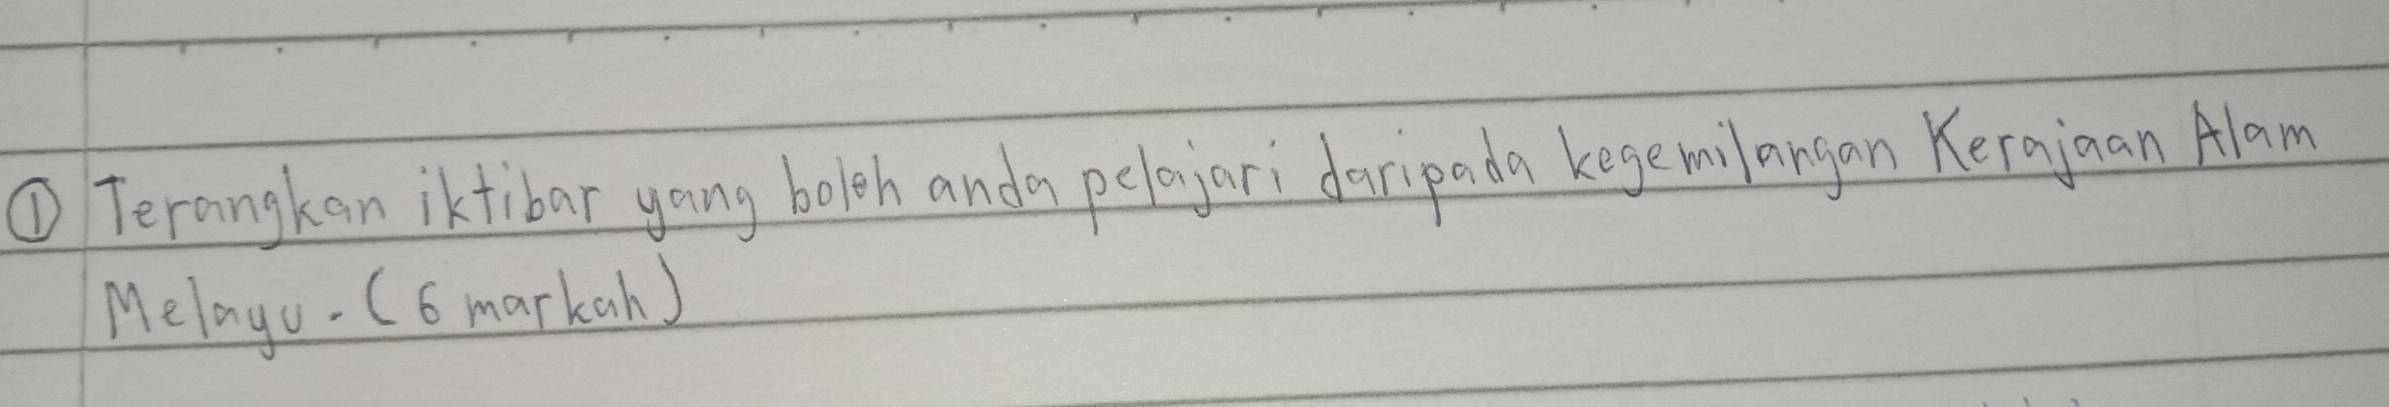 ① Terangkan iktibar yang boleh anda pelajari daripada kegemilangan Kerajaan Alam
Melayu. (6 markah)